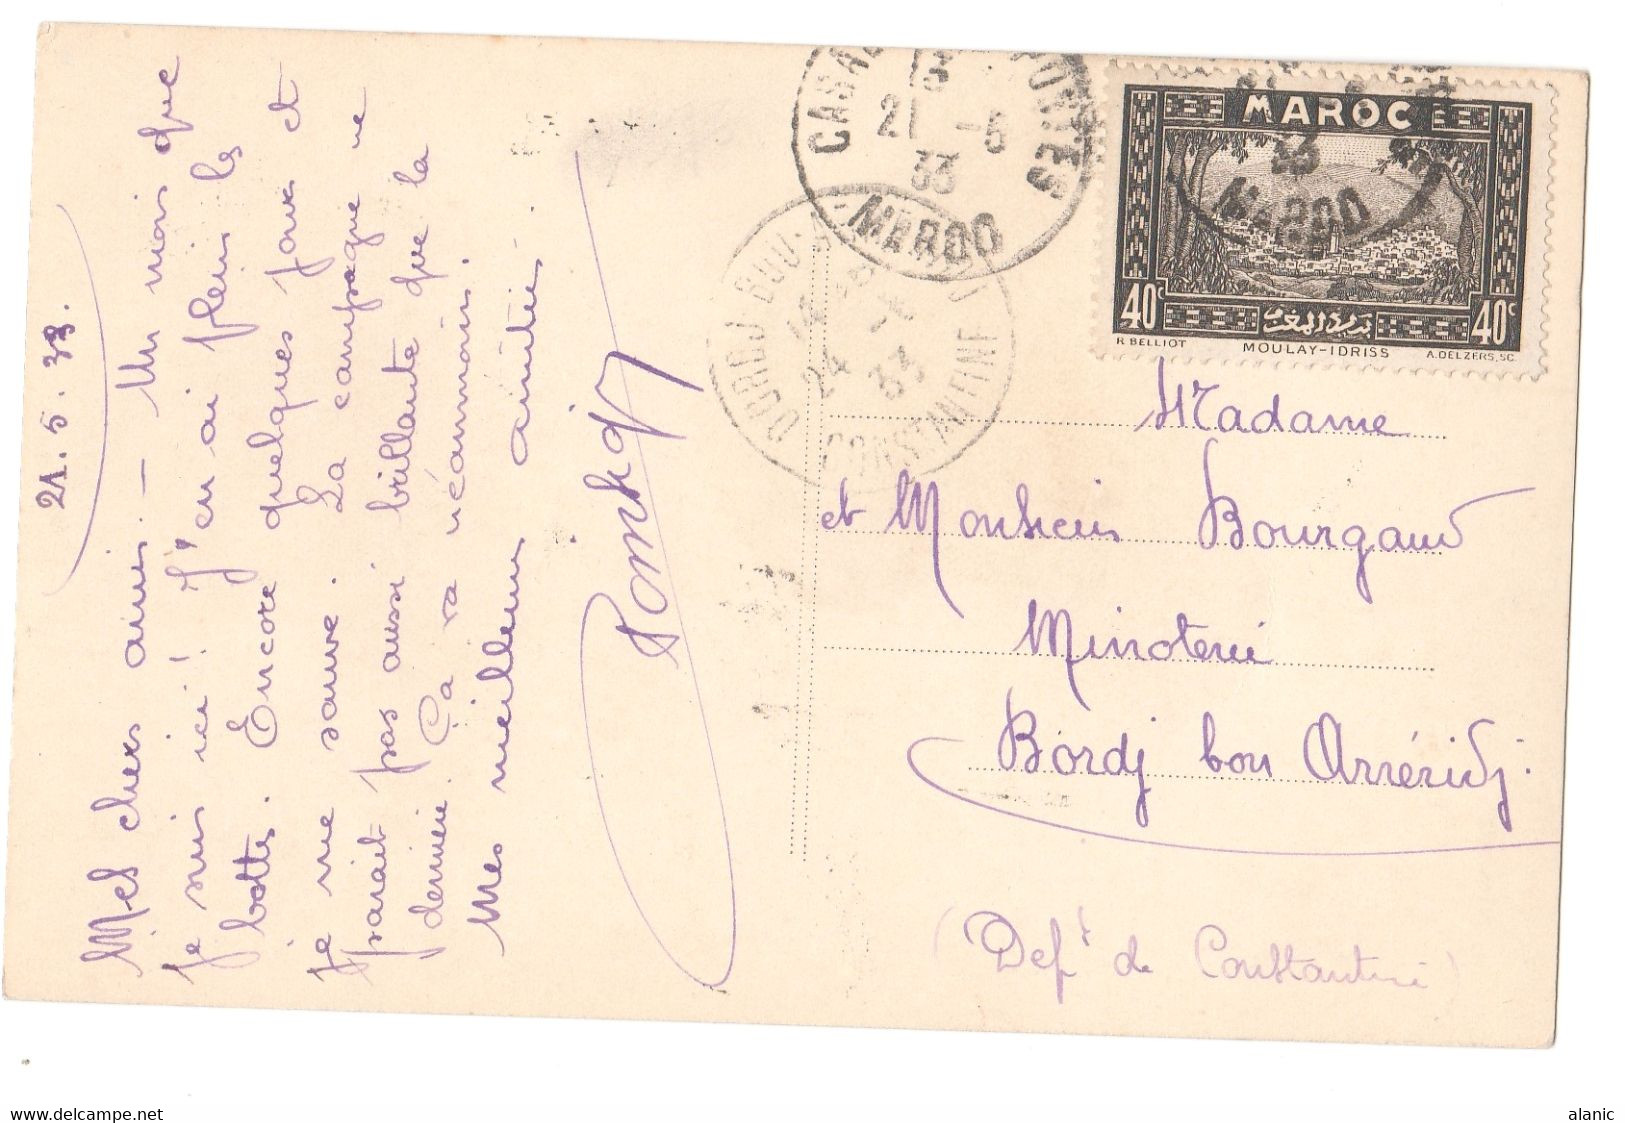 21.5.33.
Mes chers amis. - Un mois que
je suis ici! J'en ai plein les
bottes. Encore quelques jours et
je me sauve. La campagne ne
parait pas aussi brillante que la
dernière. Ça va néanmoins.
Mes meilleurs amitiés.
CASA POSTES
21 -5
33
MAROC
24
33
CONSTANTINE
MAROC
33
MAROC
40c 40c
R. BELLIOT MOULAY-IDRISS A. DELZERS, SC.
Madame
et Monsieur Bourgaud
Minoterie
Bordj bou Arréridj.
(Dept de Constantine)
www.delcampe.net alanic